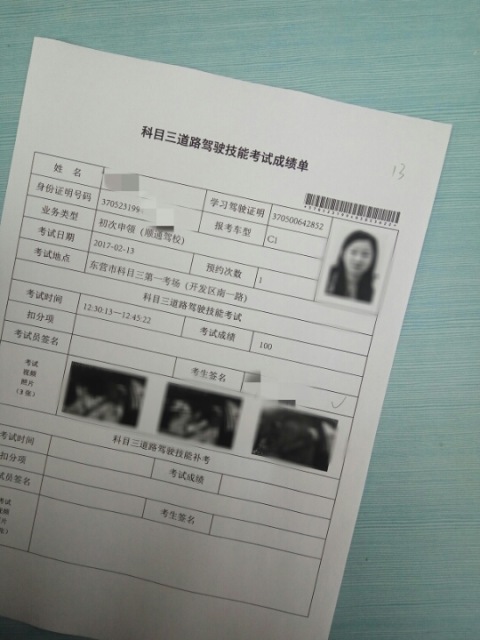 科目三道路驾驶技能考试成绩单
13
姓 名
身份证明号码 370523199 学习驾驶证明 370500642852
业务类型 初次申领（顺通驾校） 报考车型 C1
考试日期 2017-02-13 预约次数 1
考试地点 东营市科目三第一考场（开发区南一路）
科目三道路驾驶技能考试
考试时间 12:30:13—12:45:22 考试成绩 100
扣分项
考试员签名 考生签名
考试
视频
照片
（3张）
科目三道路驾驶技能补考
考试时间 考试成绩
扣分项
试员签名 考生签名
考试
视频
片
张）